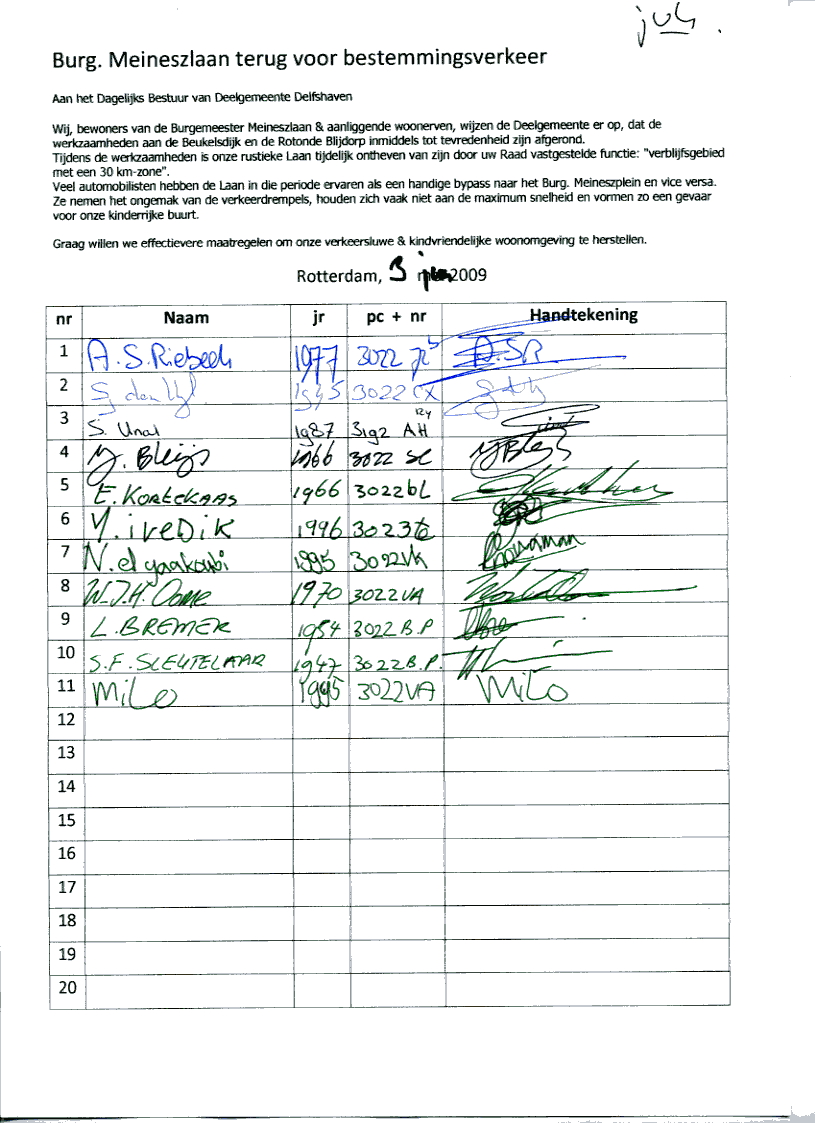 juli.
Burg. Meineszlaan terug voor bestemmingsverkeer
Aan het Dagelijks Bestuur van Deelgemeente Delfshaven
Wij, bewoners van de Burgemeester Meineszlaan & aanliggende woonerven, wijzen de Deelgemeente er op, dat de
werkzaamheden aan de Beukelsdijk en de Rotonde Blijdorp inmiddels tot tevredenheid zijn afgerond.
Tijdens de werkzaamheden is onze rustieke Laan tijdelijk ontheven van zijn door uw Raad vastgestelde functie: "verblijfsgebied
met een 30 km-zone".
Veel automobilisten hebben de Laan in die periode ervaren als een handige bypass naar het Burg. Meineszplein en vice versa.
Ze nemen het ongemak van de verkeerdrempels, houden zich vaak niet aan de maximum snelheid en vormen zo een gevaar
voor onze kinderrijke buurt.
Graag willen we effectievere maatregelen om onze verkeersluwe & kindvriendelijke woonomgeving te herstellen.
Rotterdam, 3 2009
nr Naam jr pc + nr Handtekening
1 A.S. Riebeek 1977 3022 A.S.R
2 S. 1945 3022 CX
3 S. Unal 1987 3192 AH 124
4 M. Bleijs 1966 3022 SC
5 E. KORTEKAAS 1966 3022bL
6 Y. iveDiK 1996 3023te
7 N. el yaakoubi 1995 3022VK
8 W.J.H. Oome 1970 3022VA
9 L. BREMER 1954 3022 B.P
10 S.F. SLEUTELAAR 1947 3022 B.P.
11 MiLo 1995 3022VA MiLo
12
13
14
15
16
17
18
19
20